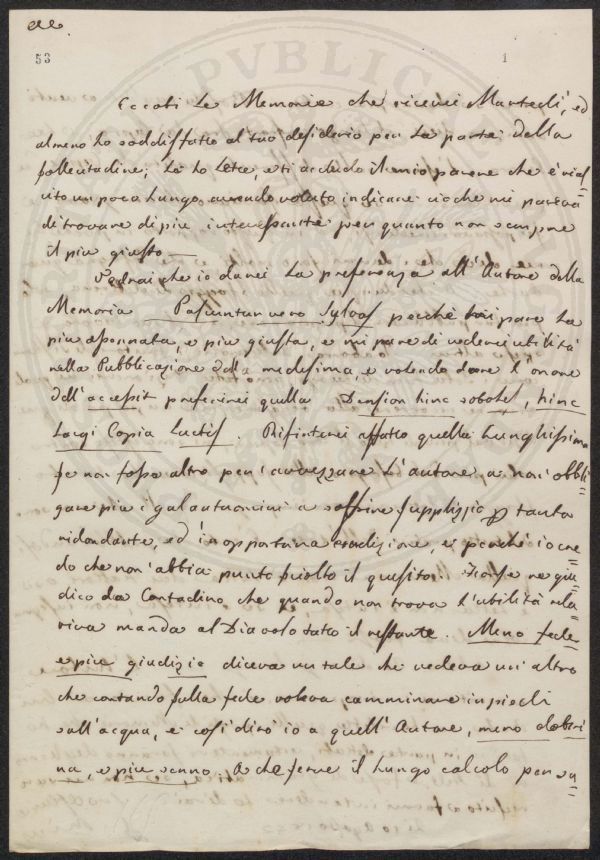 53
1
Eccoti Le Memorie che ricevei Martedì, ed
almeno ho soddisfatto al tuo desiderio per La parte della
sollecitudine; Le ho Lette, e ti accludo il mio parere che è rius=
cito un poco Lungo avendo voluto indicare ciò che mi pareva
di trovare di più interessante per quanto non sempre
il più giusto —
Vedrai che io darei La preferenza all' Autore della
Memoria Pascuntur vero Sylvas perchè mi pare La
più ragionata, e più giusta, e mi pare di vedervi utilità
nella Pubblicazione della medesima, e volendo dare l'onore
dell' accessit preferirei quella Densior hinc soboles, hinc
Largi Copia Lactis. Rifiuterei affatto quella Lunghissima
se non foss' altro per avvezzare L'autore a non obbli=
gare più i galantuomini a soffrire supplizio p tanta
ridondante, ed inopportuna erudizione, e perchè io cre=
do che non abbia punto sciolto il quesito. Forse ne giu=
dico da Contadino che quando non trova l'utilità rela=
tiva manda al Diavolo tutto il restante. Meno fede
e più giudizio diceva un tale che vedeva un altro
che contando sulla fede voleva camminare in piedi
sull' acqua, e così dirò io a quell' Autore, meno dottri=
na, e più senno. A che serve il Lungo calcolo per